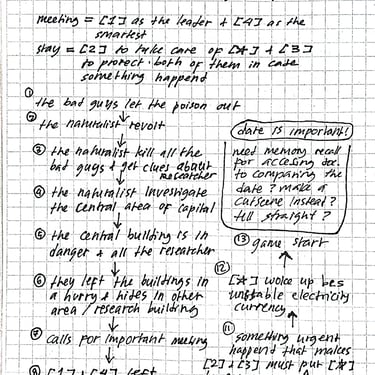 meeting = [1] as the leader + [4] as the
smartest
stay = [2] to take care of [*] + [3]
to protect both of them in case
something happend
① the bad guys let the poison out
② the naturalist revolt
③ the naturalist kill all the
bad guys + get clues about
researcher
④ the naturalist investigate
the central area of capital
⑤ the central building is in
danger + all the researcher
⑥ they left the buildings in
a hurry + hides in other
area / research building
⑦ calls for important meeting
⑧ [1] + [4] left
date is important!
need memory recall
for accesing doc.
to comparing the
date? make a
cutscene instead?
tell straight?
⑬ game start
⑫ [*] woke up bcs
unstable electricity
currency
⑪ something urgent
happend that makes
[2] + [3] must put [*]